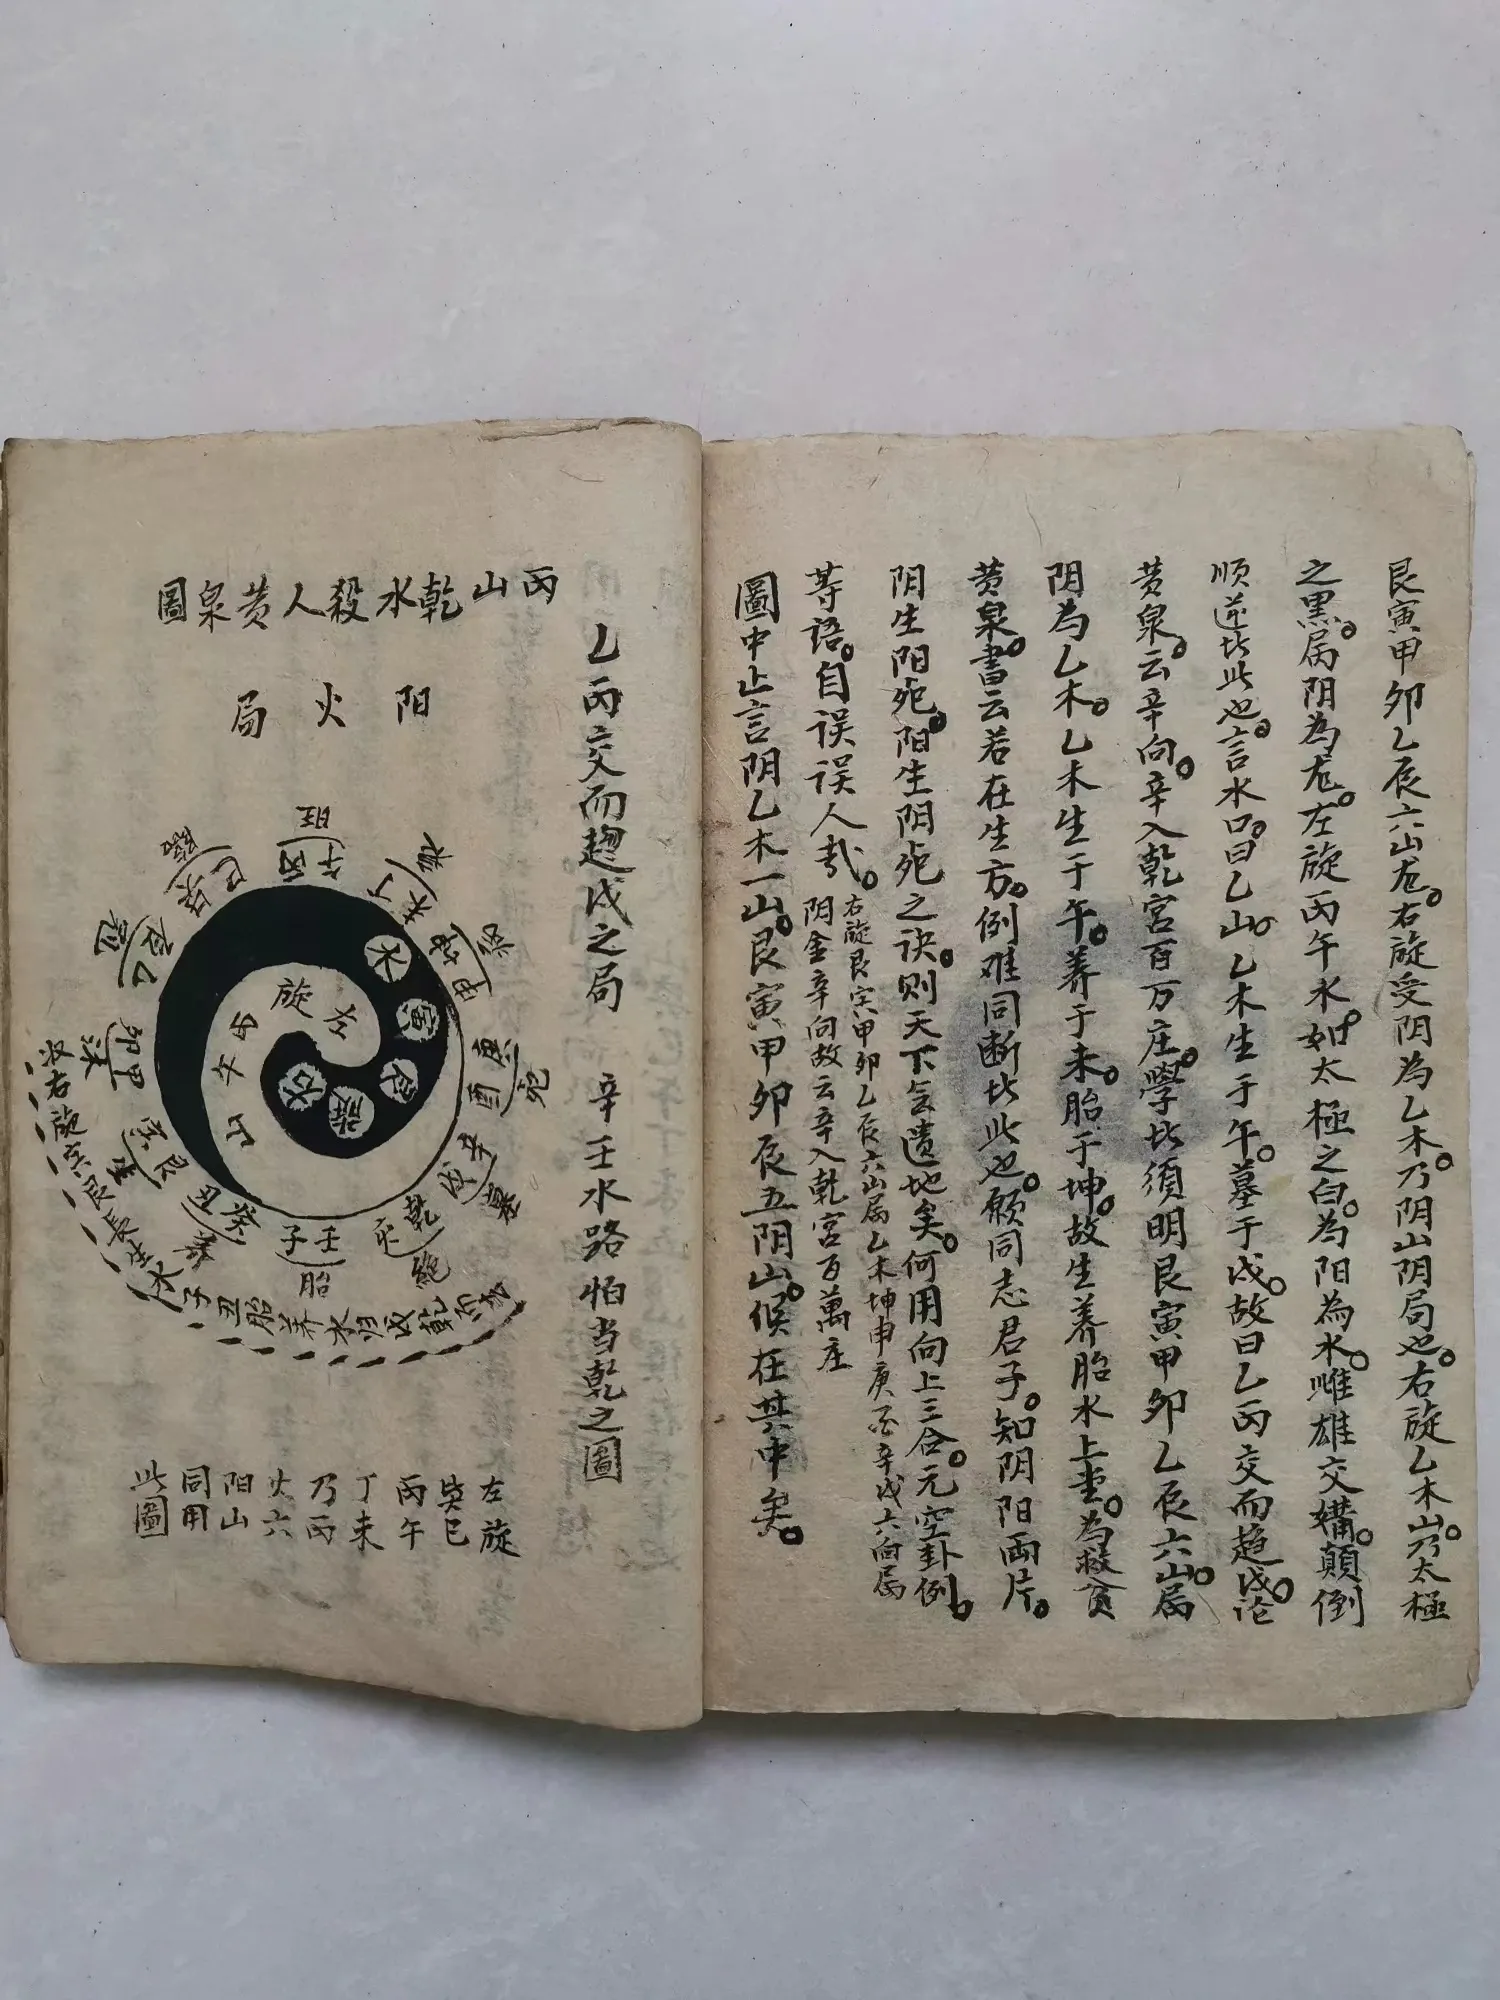 艮寅甲卯乙辰六山龙。右旋受阴为乙木。乃阴山阴局也。右旋乙木山。乃太極
之黑。属阴为龙。左旋丙午水。如太極之白。为阳為水。雌雄交媾。顛倒
順逆比此也。言水口。曰乙山。乙木生于午。墓于戌。故曰乙丙交而趨戌。论
黄泉。云辛向。辛入乾宮百万庄。學此須明艮寅甲卯乙辰六山。局
阴为乙木。乙木生于午。养于未。胎于坤。故生养胎水上堂。為救貧
黄泉。書云若在生方。例难同断比此也。願同志君子。知阴阳両片。
阴生阳死。阳生阴死之诀。则天下无遗地矣。何用向上三合。元空卦例。
等语。自误误人哉。
右旋艮寅甲卯乙辰六山属乙木坤申庚酉辛戌六向属
阴金辛向故云辛入乾宮百萬庄
圖中止言阴乙木一山。艮寅甲卯辰五阴山。候在其中矣。
乙丙交而趨戌之局 辛壬水路怕当乾之圖
丙山乾水殺人黄泉圖
阳火局
旺
午丙
丁未
坤申
庚酉
死
辛戌
墓
乾亥
絕
壬子
胎
癸丑
养
艮寅
生
甲卯
沐
乙辰
冠
巽巳
臨
左旋
丙午山
水
寅
右旋
左旋
巽巳
丙午
丁未
乃丙
火六
阳山
同用
此圖